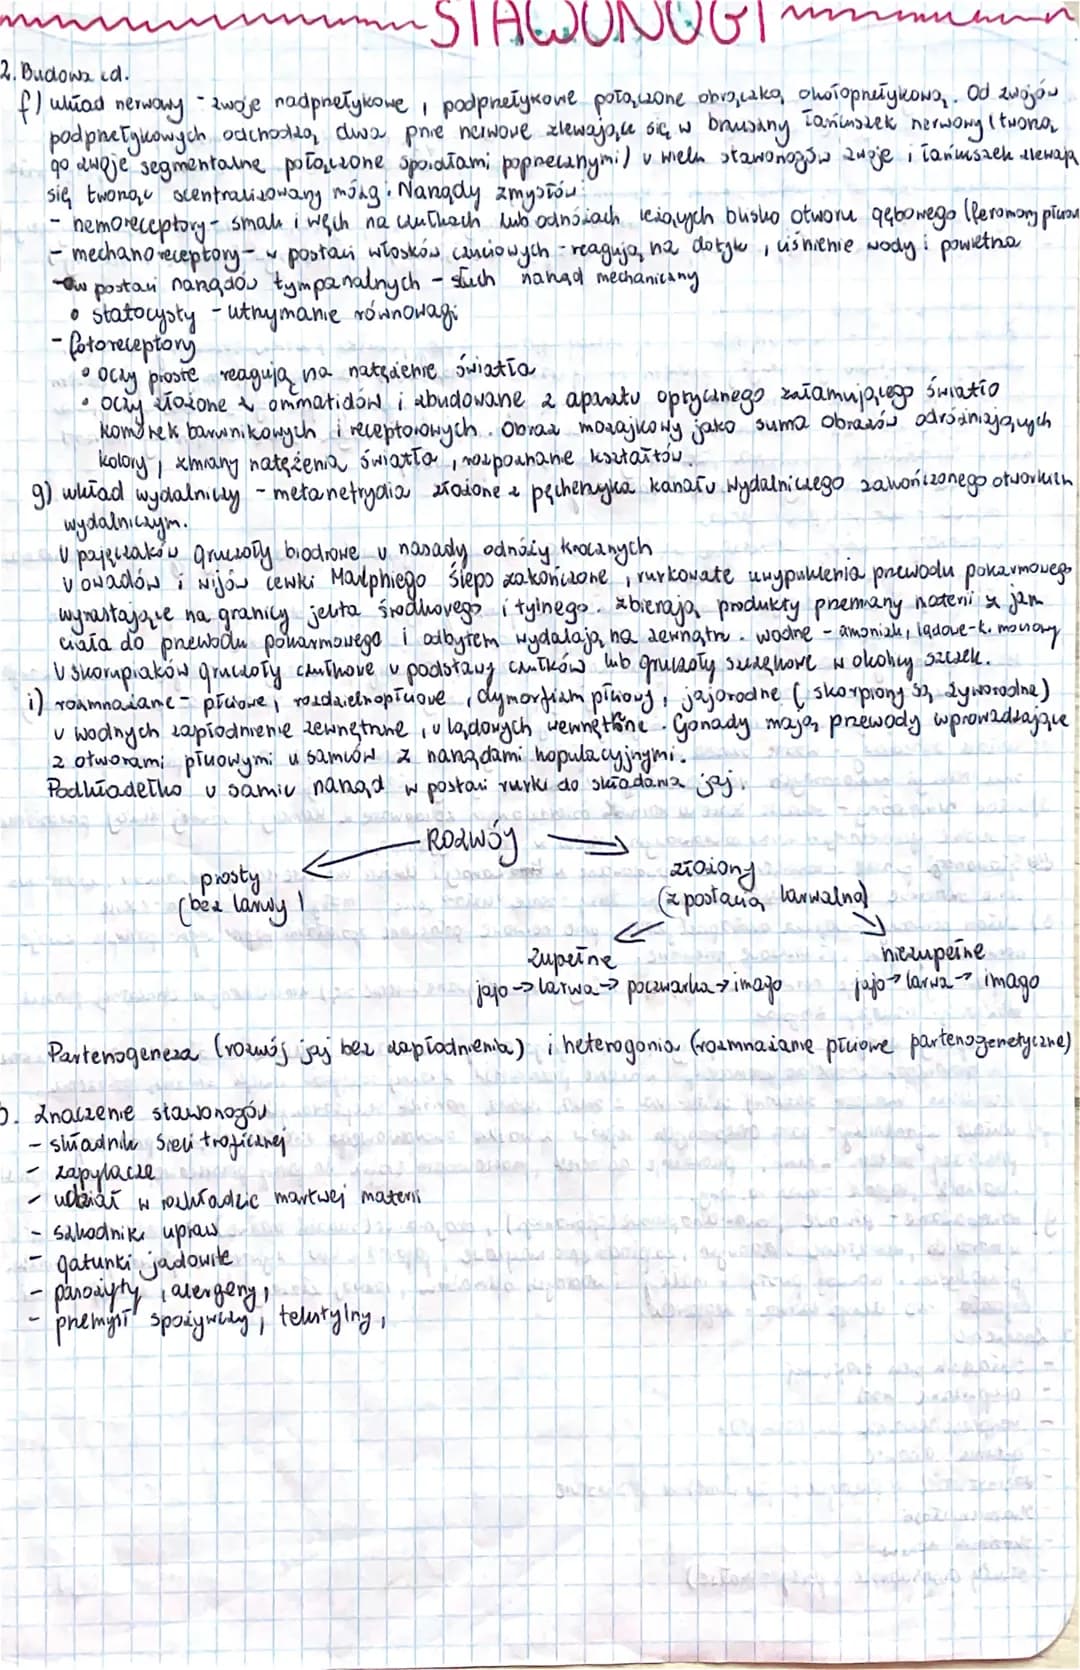 STAWONOGI
2. Budowa cd.
f) układ nerwowy - zwoje nadprzełykowe, podprzełykowe połączone obrączką okołoprzełykową. Od zwojów
podprzełykowych odchodzą dwa pnie nerwowe zlewające się w brzuszny łańcuszek nerwowy (tworzą
go zwoje segmentalne połączone spoidłami poprzecznymi) u wielu stawonogów zwoje i łańcuszek zlewają
się tworząc scentralizowany mózg. Narządy zmysłów:
- hemoreceptory - smak i węch na czułkach lub odnóżach leżących blisko otworu gębowego (feromony płciowe
- mechanoreceptory - w postaci włosków czuciowych - reagują na dotyk, ciśnienie wody i powietrza
- w postaci narządów tympanalnych - słuch narząd mechaniczny
• statocysty - utrzymanie równowagi
- fotoreceptory
• oczy proste reagują na natężenie światła
• oczy złożone z ommatidów i zbudowane z aparatu optycznego załamującego światło
komórek barwnikowych i receptorowych. Obraz mozajkowy jako suma obrazów odróżniających
kolory, zmiany natężenia światła, rozpoznane kształtów.
g) układ wydalniczy - metanefrydia złożone z pęcherzyka kanału wydalniczego zakończonego otworkiem
wydalniczym.
U pajęczaków gruczoły biodrowe u nasady odnóży krocznych
U owadów i wijów cewki Malphiego ślepo zakończone, rurkowate uwypuklenia przewodu pokarmowego
wyrastające na granicy jelita środkowego i tylnego. zbierają produkty przemiany materii z jam
ciała do przewodu pokarmowego i odbytem wydalają na zewnątrz. wodne - amoniak, lądowe - k. moczowy
U skorupiaków gruczoły czułkowe u podstawy czułków lub gruczoły szczękowe w okolicy szczęk.
i) rozmnażane - płciowe, rozdzielnopłciowe, dymorfizm płciowy, jajorodne (skorpiony są żyworodne)
u wodnych zapłodnienie zewnętrzne, u lądowych wewnętrzne. Gonady mają przewody wprowadzające
z otworami płciowymi u samców z narządami kopulacyjnymi.
Pokładełko u samic narząd w postaci rurki do składania jaj.
ROZWÓJ
prosty
(bez larwy)
złożony
(z postacią larwalną)
zupełne
jajo → larwa → poczwarka → imago
niezupełne
jajo → larwa → imago
Partenogeneza (rozwój jaj bez zapłodnienia) i heterogonia (rozmnażanie płciowe partenogenetyczne)
3. Znaczenie stawonogów
- składnik sieci troficznej
- zapylacze
- udział w rozkładzie martwej materii
- szkodniki upraw
- gatunki jadowite
- pasożyty, alergeny,
- przemysł spożywczy, tekstylny,